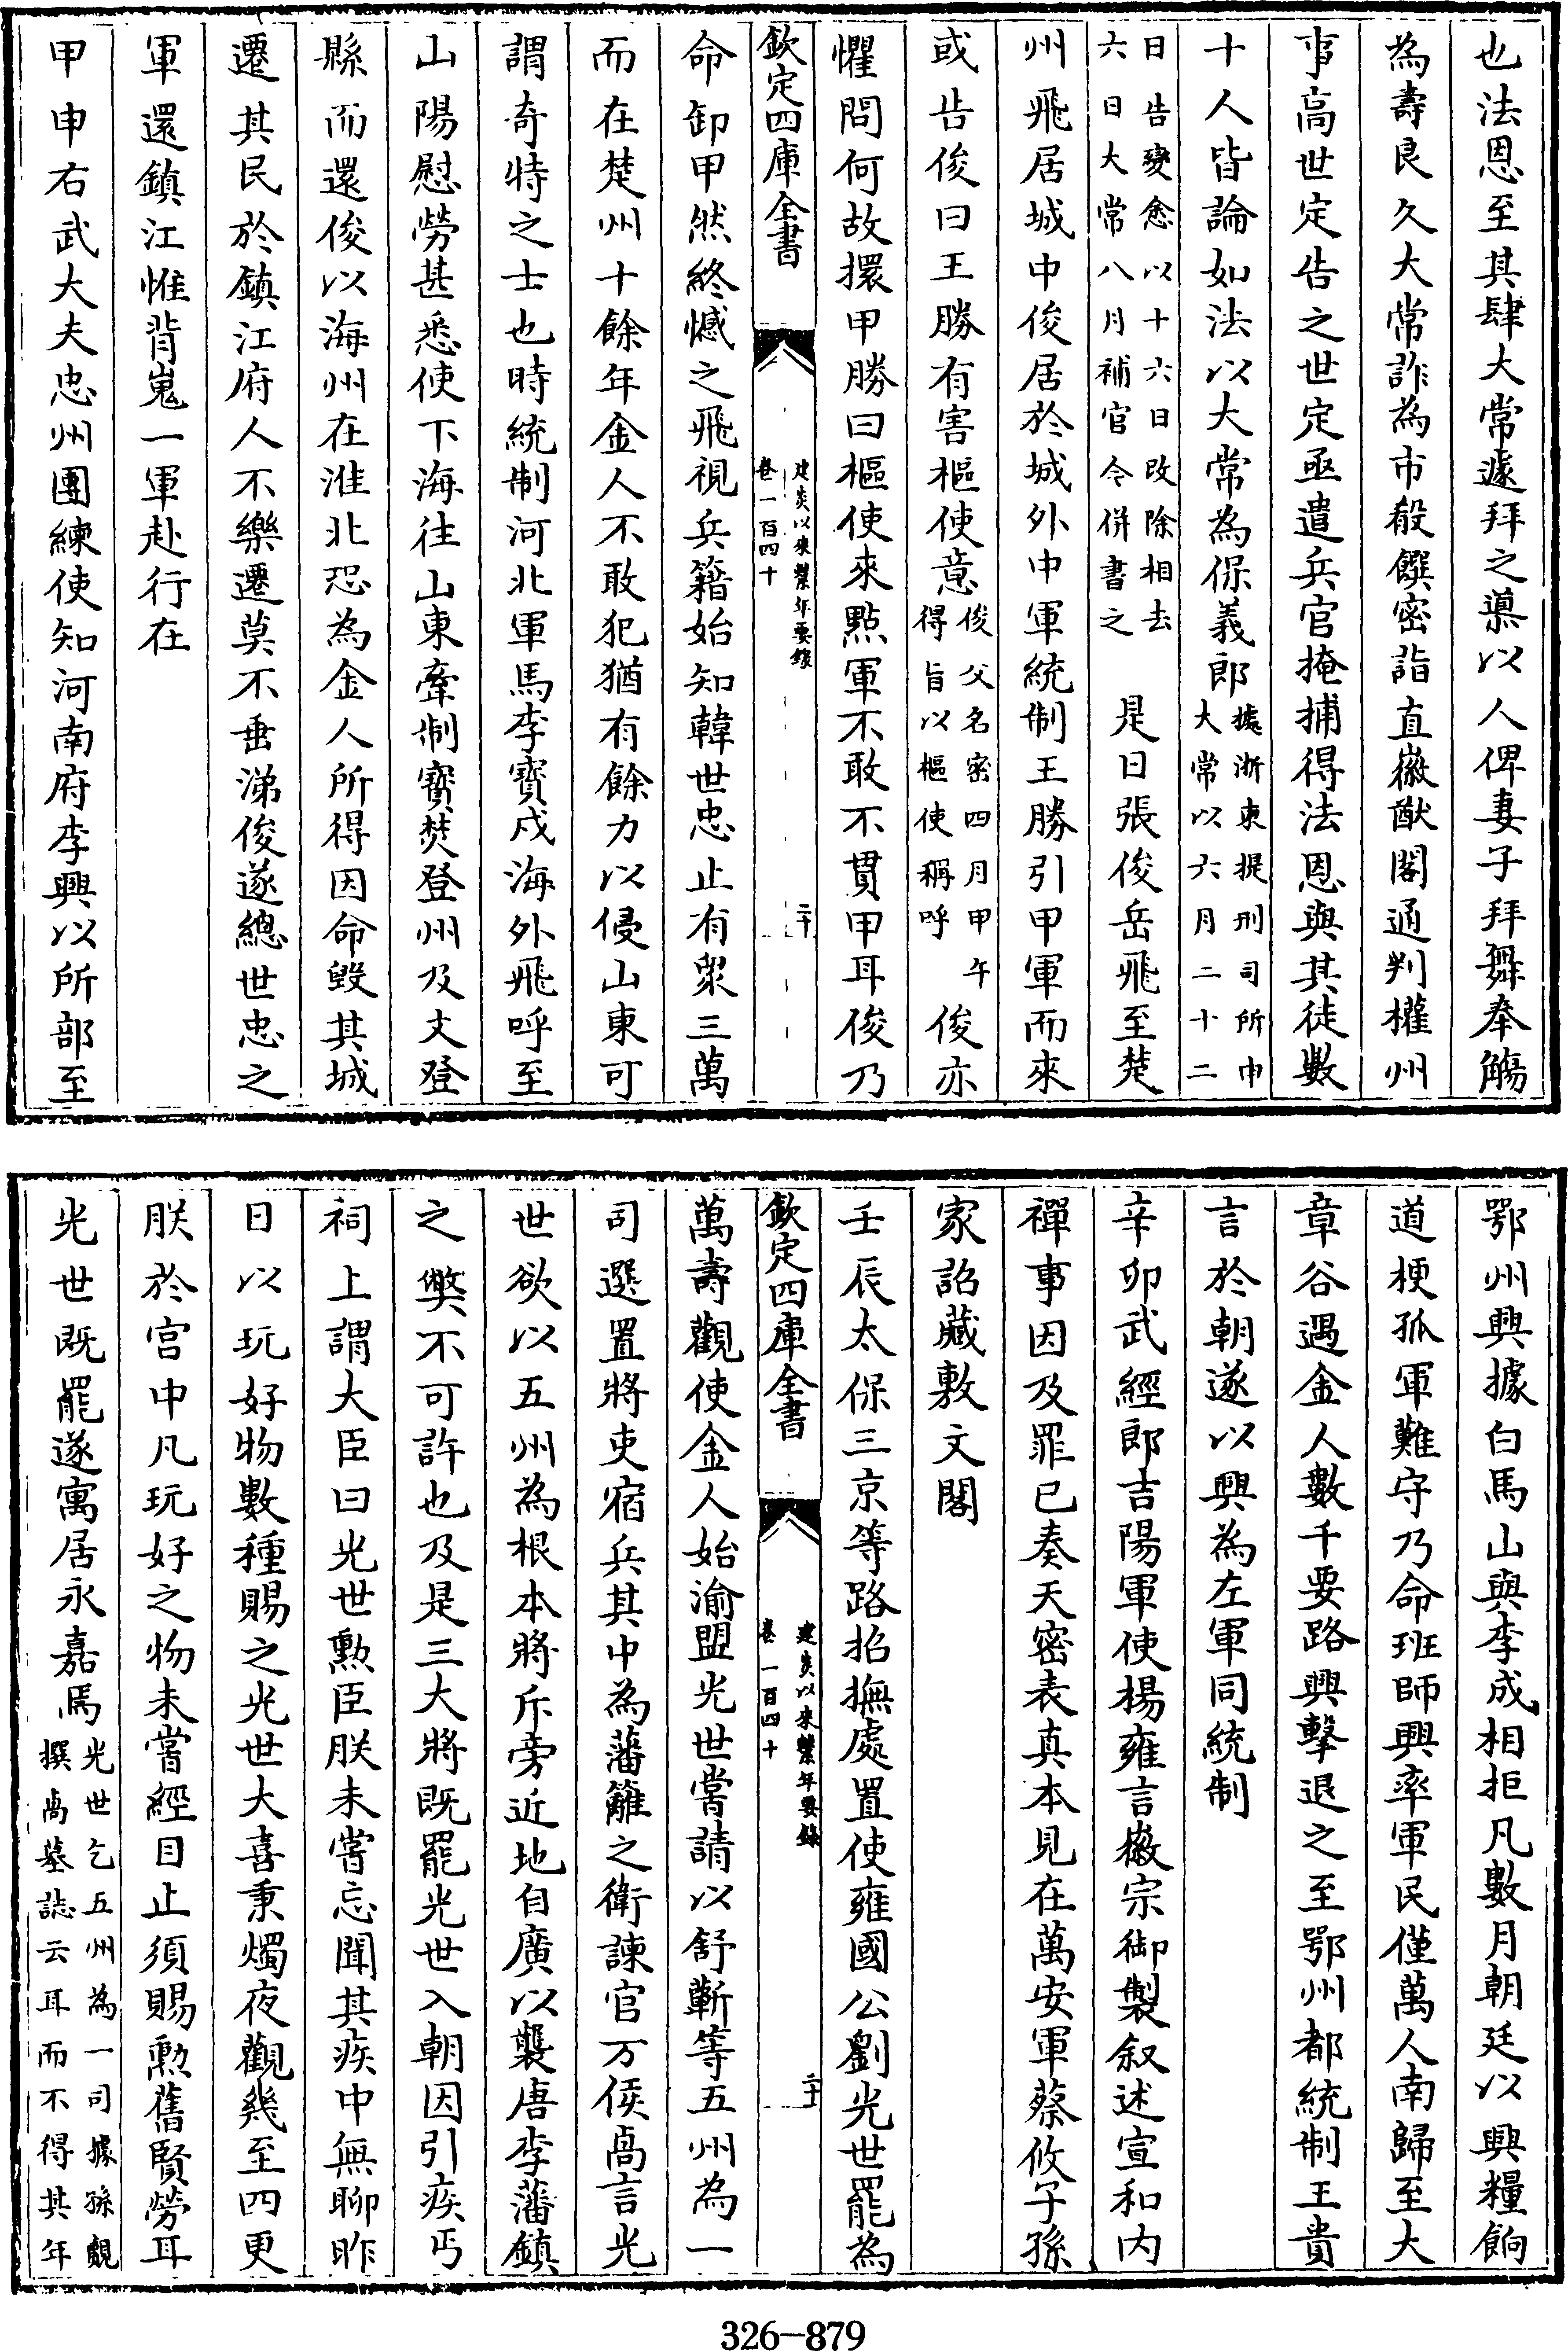 也法恩至其肆大常遽拜之導以人俾妻子拜舞奉觴
為壽良久大常詐為市殽饌密詣直徽猷閣通判權州
事高世定告之世定亟遣兵官掩捕得法恩與其徒數
十人皆論如法以大常為保義郎據浙東提刑司所申大常以六月二十二
日告變愈以十六日改除相去六日大常八月補官今併書之 是日張俊岳飛至楚
州飛居城中俊居於城外中軍統制王勝引甲軍而來
或告俊曰王勝有害樞使意俊父名密四月甲午得旨以樞使稱呼 俊亦
懼問何故擐甲勝曰樞使來點軍不敢不貫甲耳俊乃
欽定四庫全書 建炎以來繫年要錄 卷一百四十 二十
命卸甲然終憾之飛視兵籍始知韓世忠止有衆三萬
而在楚州十餘年金人不敢犯猶有餘力以侵山東可
謂奇特之士也時統制河北軍馬李寶戍海外飛呼至
山陽慰勞甚悉使下海往山東牽制寶焚登州及文登
縣而還俊以海州在淮北恐為金人所得因命毀其城
遷其民於鎮江府人不樂遷莫不垂涕俊遂總世忠之
軍還鎮江惟背嵬一軍赴行在
甲申右武大夫忠州團練使知河南府李興以所部至
鄂州興據白馬山與李成相拒凡數月朝廷以興糧餉
道梗孤軍難守乃命班師興率軍民僅萬人南歸至大
章谷遇金人數千要路興擊退之至鄂州都統制王貴
言於朝遂以興為左軍同統制
辛卯武經郎吉陽軍使楊雍言徽宗御製叙述宣和内
禪事因及罪已奏天密表真本見在萬安軍蔡攸子孫
家詔藏敷文閣
壬辰太保三京等路招撫處置使雍國公劉光世罷為
欽定四庫全書 建炎以來繫年要錄 卷一百四十 二十
萬壽觀使金人始渝盟光世嘗請以舒蘄等五州為一
司選置將吏宿兵其中為藩籬之衛諫官万俟卨言光
世欲以五州為根本將斥旁近地自廣以襲唐李藩鎮
之弊不可許也及是三大將既罷光世入朝因引疾丐
祠上謂大臣曰光世勲臣朕未嘗忘聞其疾中無聊昨
日以玩好物數種賜之光世大喜秉燭夜觀幾至四更
朕於宫中凡玩好之物未嘗經目止須賜勲舊賢勞耳
光世既罷遂寓居永嘉焉光世乞五州為一司據孫覿撰卨墓誌云耳而不得其年
326-879